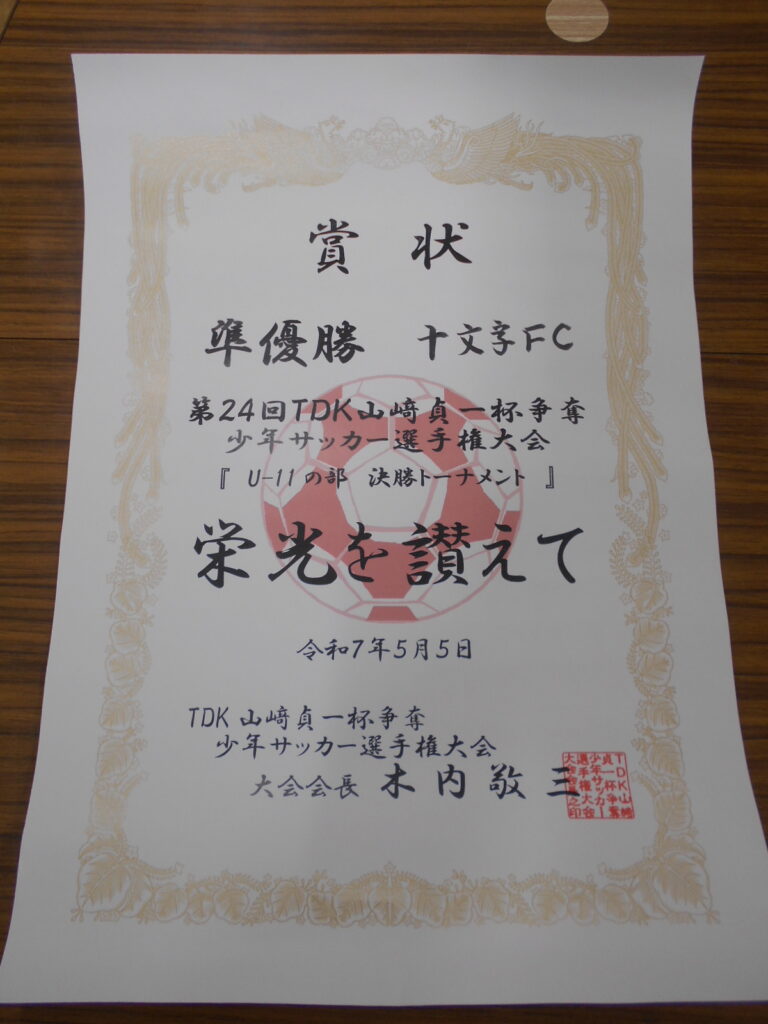 賞 状
準優勝 十文字FC
第24回TDK山﨑貞一杯争奪
少年サッカー選手権大会
『 U-11の部 決勝トーナメント 』
栄光を讃えて
令和7年5月5日
TDK 山﨑貞一杯争奪
少年サッカー選手権大会
大会会長 木内敬三
TDK山﨑
貞一杯争奪
少年サッカー
選手権大会
大会会長之印